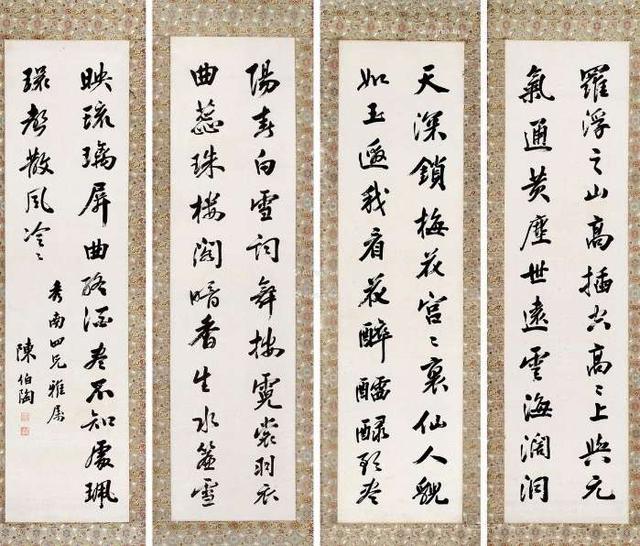 羅浮之山高插空高〻上與元
氣通黃塵世遠雲海濶洞
天深鎖梅花宮〻裏仙人貌
如玉邀我看花醉醽醁歌
陽春白雪詞舞按霓裳羽衣
曲蕊珠樓閣暗香生水簾雪
映琉璃屏曲終酒盡不知處珮
環聲散風泠〻
秀南四兄雅屬
陳伯陶